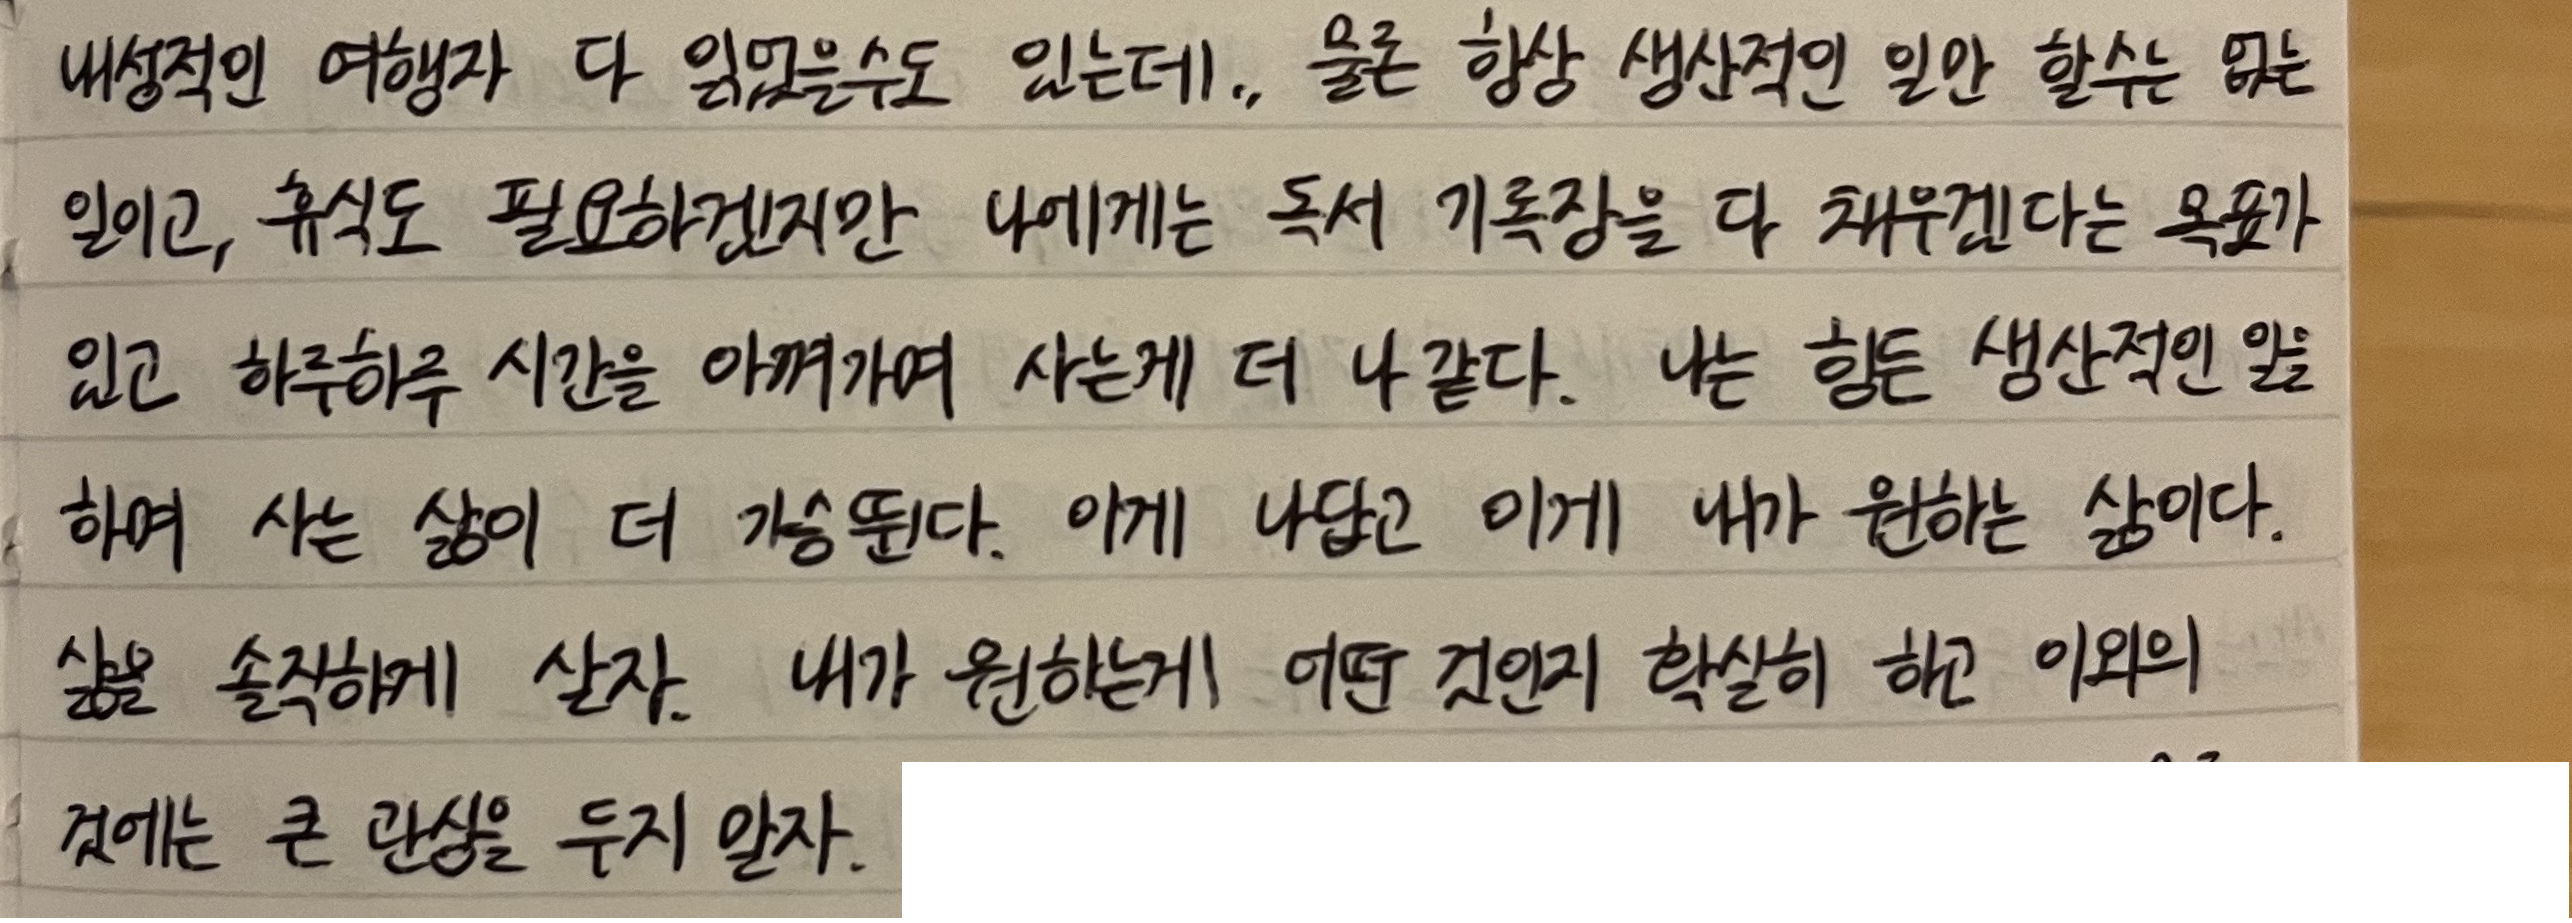 내성적인 여행자 다 읽었을수도 있는데.. 물론 항상 생산적인 일만 할수는 없는
일이고, 휴식도 필요하겠지만 나에게는 독서 기록장을 다 채우겠다는 목표가
있고 하루하루 시간을 아껴가며 사는게 더 나 같다. 나는 힘든 생산적인 일을
하며 사는 삶이 더 가슴 뛴다. 이게 나답고 이게 내가 원하는 삶이다.
삶을 솔직하게 살자. 내가 원하는게 어떤 것인지 확실히 하고 이외의
것에는 큰 관심을 두지 말자.